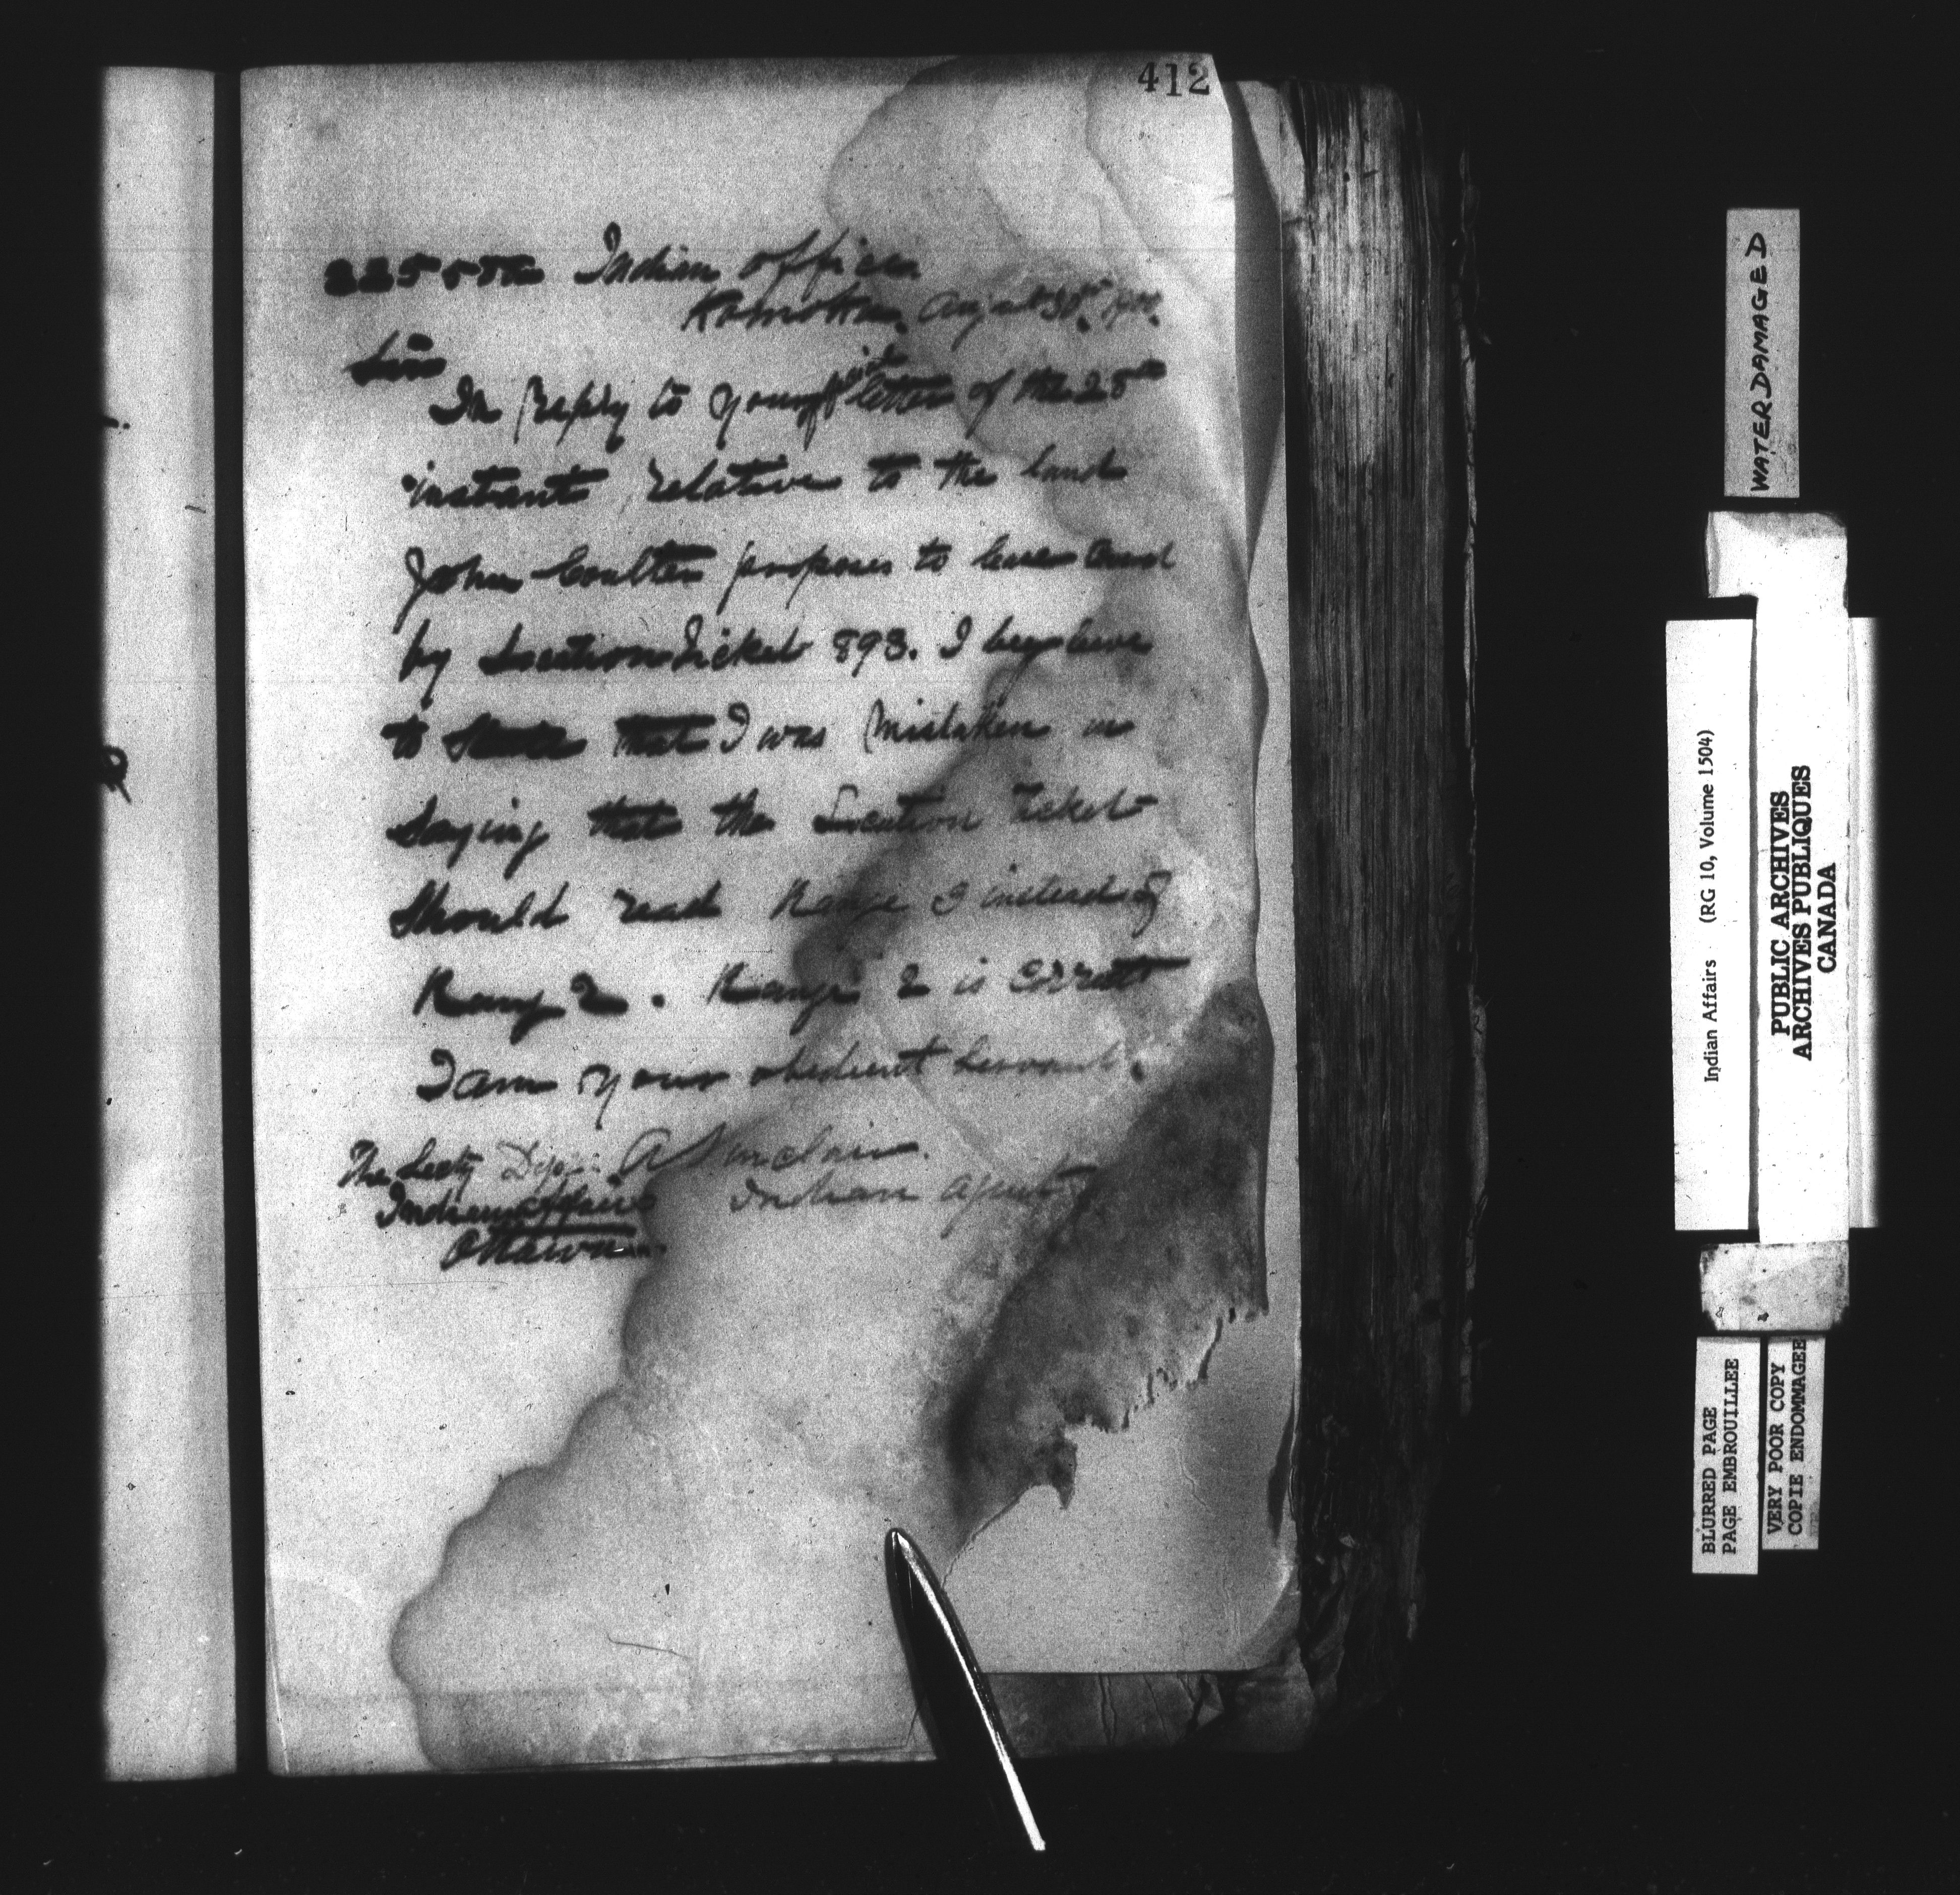 412
Indian Office
Komoka, August 30th, 1900.
Sir
In Reply to your letter of the 28th
instant relative to the land
John Coulter proposes to lease and
by Location Ticket 893. I beg leave
to State that I was Mistaken in
Saying that the Location Ticket
Should read Range I instead of
Rang 2. Range 2 is Correct
I am your obedient Servant.
The Secty Dept. A Sinclair.
Indian Affairs Indian Agent
Ottawa.
WATER DAMAGED
Indian Affairs (RG 10, Volume 1504)
PUBLIC ARCHIVES
ARCHIVES PUBLIQUES
CANADA
BLURRED PAGE
PAGE EMBROUILLEE
VERY POOR COPY
COPIE ENDOMMAGEE